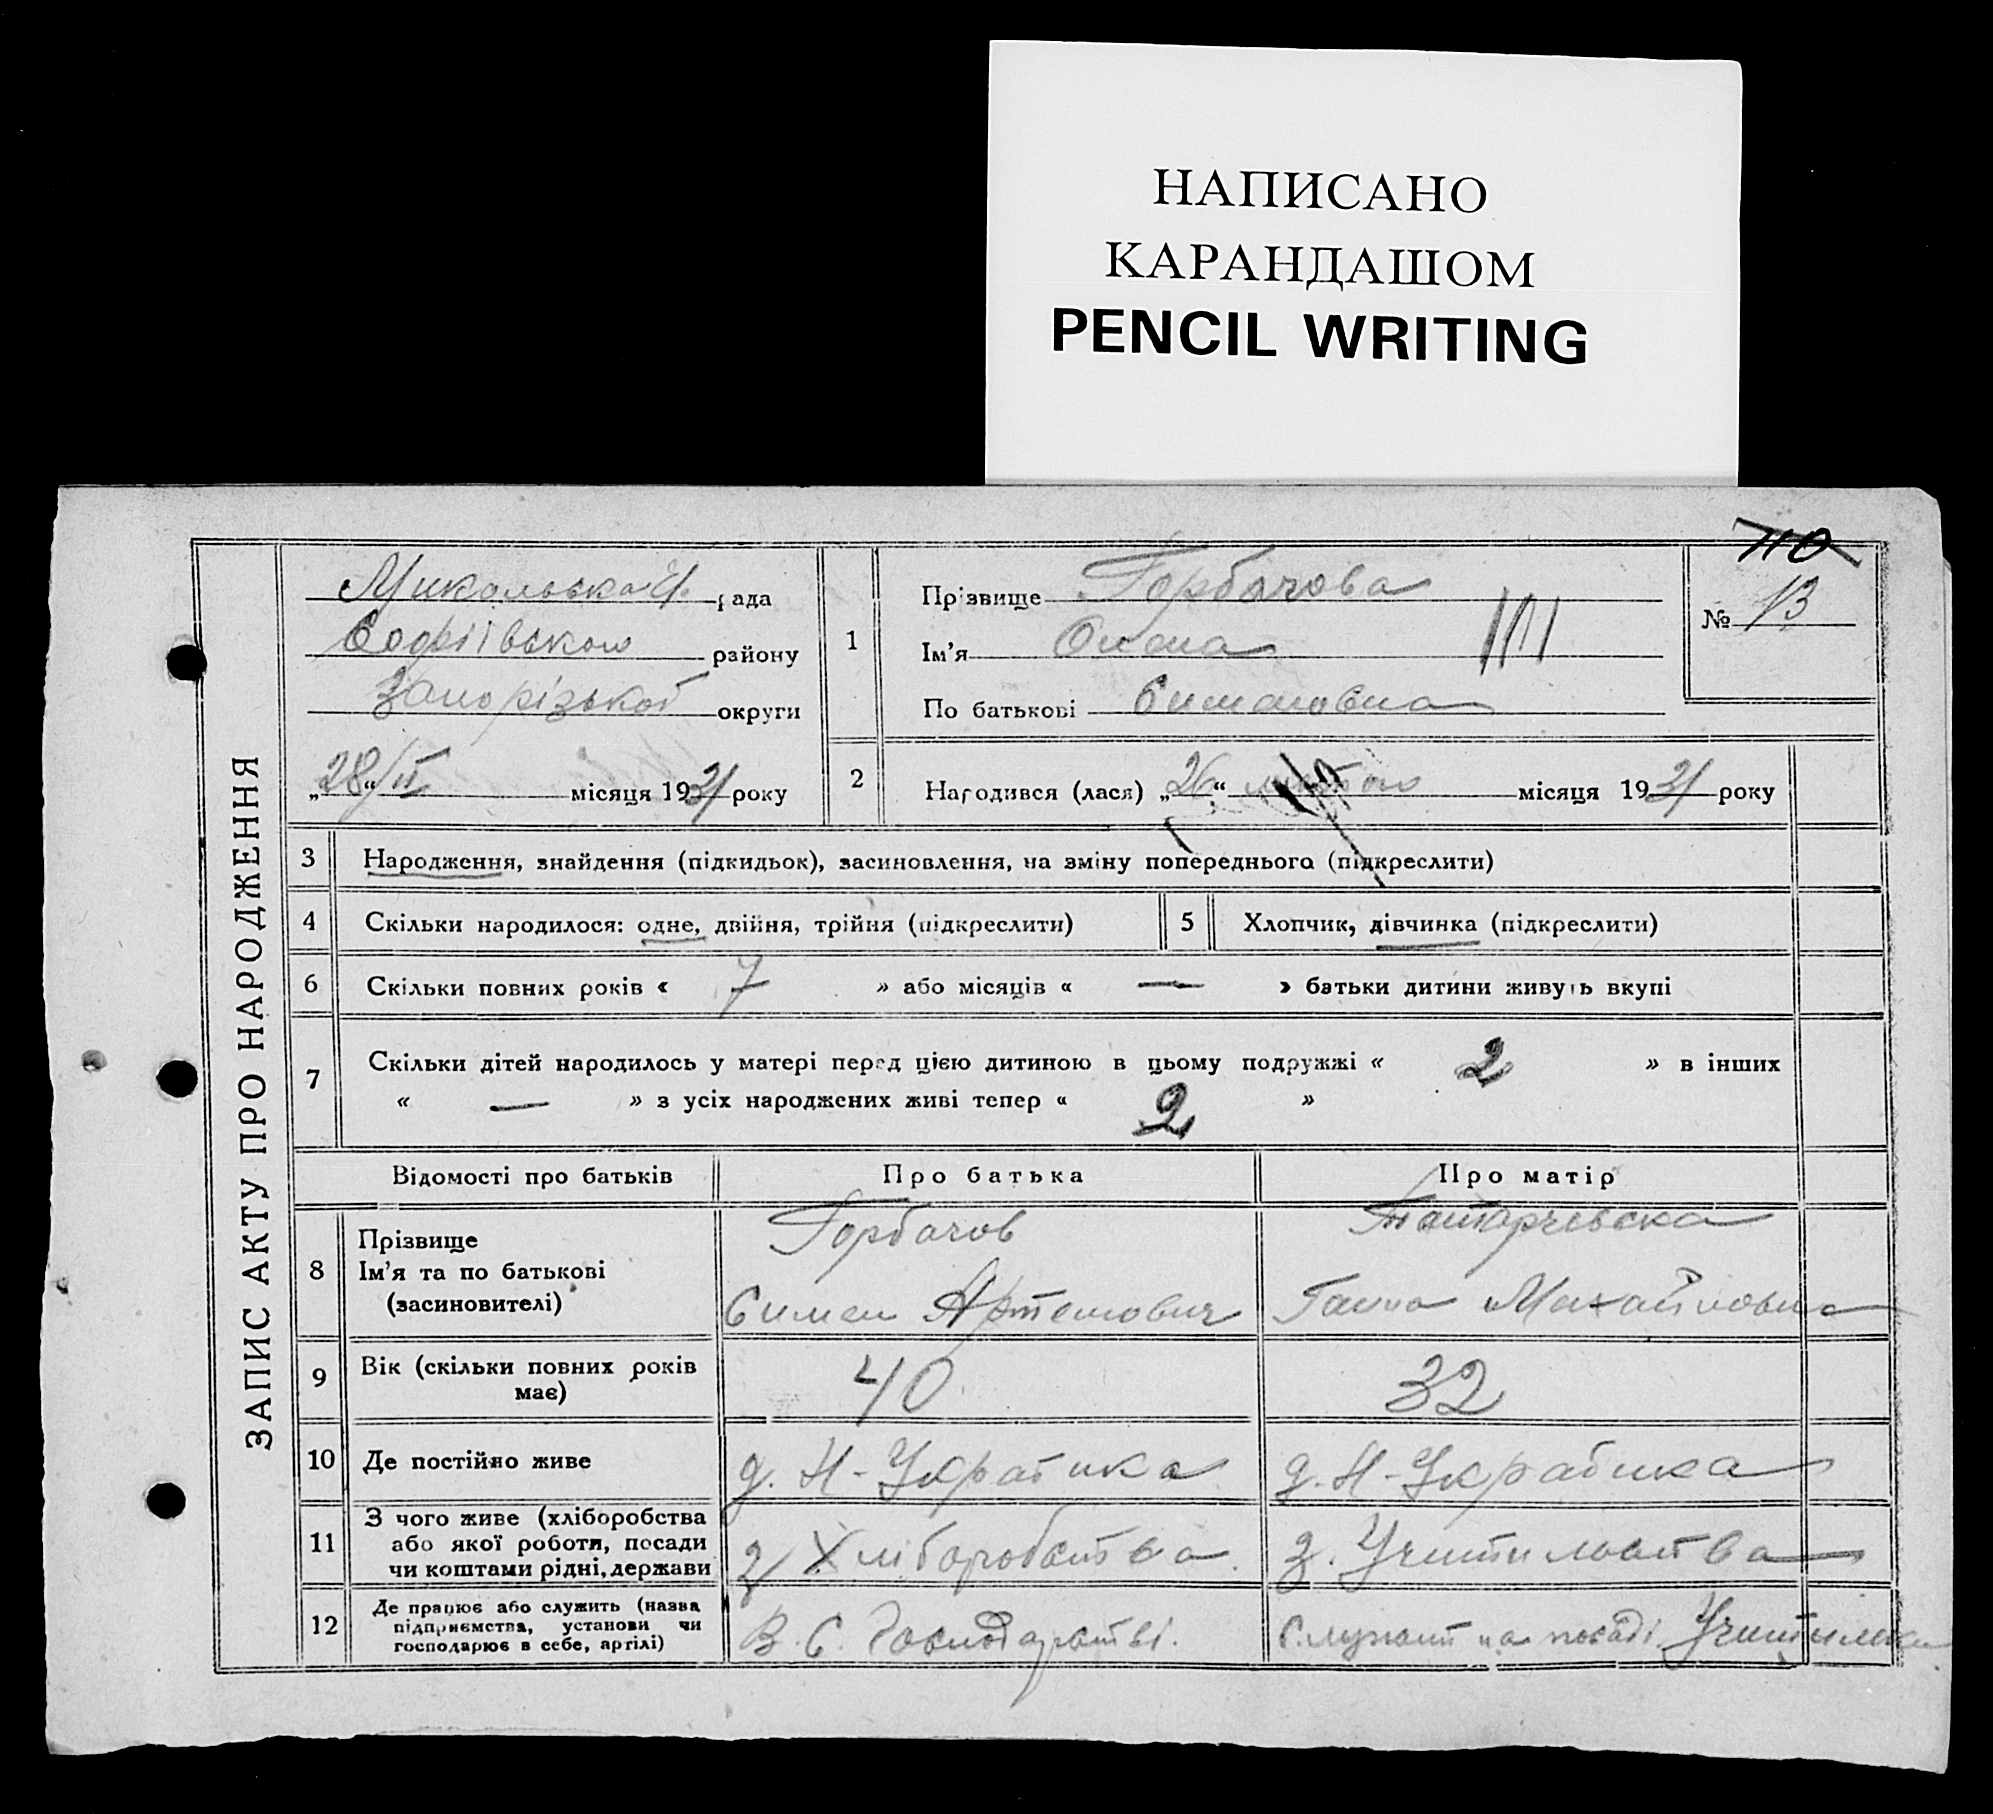 НАПИСАНО
КАРАНДАШОМ
PENCIL WRITING
ЗАПИС АКТУ ПРО НАРОДЖЕННЯ
рада
Софіівського району
Запорізької округи
„28“/II місяця 1931 року
110
№ 13
1
Прізвище Горбачова
Ім'я Олена
По батькові Сименовна
2 Народився (лася) „26“ лютого місяця 1931 року
3 Народження, знайдення (підкидьок), засиновлення, на зміну попереднього (підкреслити)
4 Скільки народилося: одне, двійня, трійня (підкреслити) 5 Хлопчик, дівчинка (підкреслити)
6 Скільки повних років « 7 » або місяців « — » батьки дитини живуть вкупі
7 Скільки дітей народилось у матері перед цією дитиною в цьому подружжі « 2 » в інших
« — » з усіх народжених живі тепер « 2 »
Відомості про батьків Про батька Про матір
8 Прізвище
Ім'я та по батькові
(засиновителі)
Горбачов
Симен Артемович
Татарчевська
Ганна Михайловна
9 Вік (скільки повних років
має)
40 32
10 Де постійно живе д. Н-Украінка д. Н-Украінка
11 З чого живе (хліборобства
або якої роботи, посади
чи коштами рідні, держави
з Хліборобства з. Учительства
12 Де працює або служить (назва
підприємства, установи чи
господарює в себе, артілі)
В. С. Господарстві.
на посаді Учительки